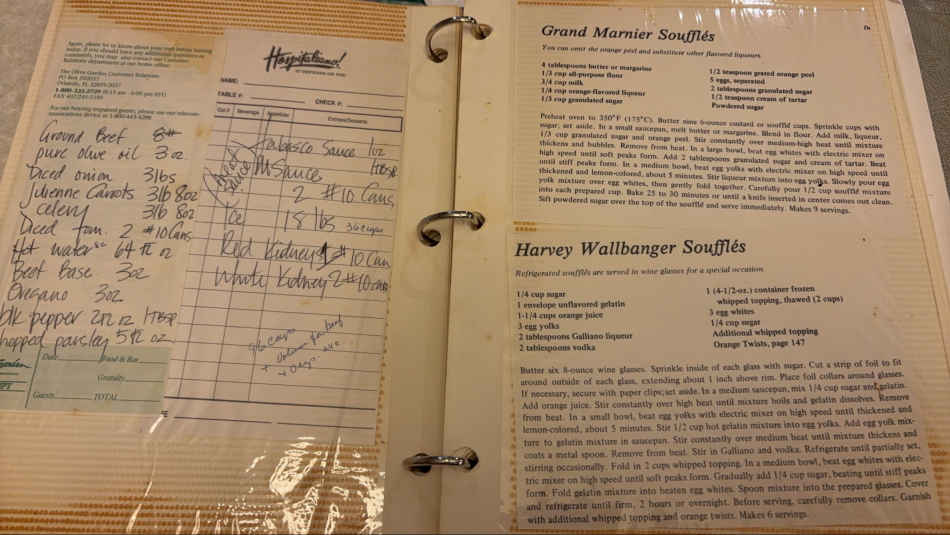 Again, please let us know about your visit before leaving
today. If you should have any additional questions or
comments, you may also contact our Customer
Relations department at our home office:
The Olive Garden Customer Relations
PO Box 592037
Orlando, FL 32859-2037
1-800-331-2729 (8:15 am - 6:00 pm EST)
FAX 407/245-5189
For our hearing-impaired guests, please use our telecom-
munications device at 1-800-443-6296
Ground Beef 8#
pure olive oil 3 oz
Diced onion 3 lbs
Julienne Carrots 3 lb 8 oz
celery 3 lb 8 oz
Diced Tom. 2 #10 Cans
Hot water 64 fl oz
Beef Base 3 oz
Oregano 3 oz
blk pepper 2 fl oz 1 tbsp
chopped parsley 5 fl oz
Date
Food & Bar
Gratuity
Guests
TOTAL
Hospitaliano!
NAME:
TABLE #: CHECK #:
Gst # Beverage Appetizer Entree/Desserts
Tabasco Sauce 1 oz
1 tbsp
M Sauce
2 #10 Cans
Ice 18 lbs 36 cups
Red Kidney 1 #10 Can
White Kidney 2 #10 cans
96 cups
Grand Marnier Soufflés
You can omit the orange peel and substitute other flavored liqueurs.
4 tablespoons butter or margarine
1/3 cup all-purpose flour
3/4 cup milk
1/4 cup orange-flavored liqueur
1/3 cup granulated sugar
1/2 teaspoon grated orange peel
5 eggs, separated
2 tablespoons granulated sugar
1/2 teaspoon cream of tartar
Powdered sugar
Preheat oven to 350°F (175°C). Butter nine 6-ounce custard or soufflé cups. Sprinkle cups with
sugar, set aside. In a small saucepan, melt butter or margarine. Blend in flour. Add milk, liqueur,
1/3 cup granulated sugar and orange peel. Stir constantly over medium-high heat until mixture
thickens and bubbles. Remove from heat. In a large bowl, beat egg whites with electric mixer on
high speed until soft peaks form. Add 2 tablespoons granulated sugar and cream of tartar. Beat
until stiff peaks form. In a medium bowl, beat egg yolks with electric mixer on high speed until
thickened and lemon-colored, about 5 minutes. Stir liqueur mixture into egg yolks. Slowly pour egg
yolk mixture over egg whites, then gently fold together. Carefully pour 1/2 cup soufflé mixture
into each prepared cup. Bake 25 to 30 minutes or until a knife inserted in center comes out clean.
Sift powdered sugar over the top of the soufflé and serve immediately. Makes 9 servings.
Harvey Wallbanger Soufflés
Refrigerated soufflés are served in wine glasses for a special occasion.
1/4 cup sugar
1 envelope unflavored gelatin
1-1/4 cups orange juice
3 egg yolks
2 tablespoons Galliano liqueur
2 tablespoons vodka
1 (4-1/2-oz.) container frozen
whipped topping, thawed (2 cups)
3 egg whites
1/4 cup sugar
Additional whipped topping
Orange Twists, page 147
Butter six 8-ounce wine glasses. Sprinkle inside of each glass with sugar. Cut a strip of foil to fit
around outside of each glass, extending about 1 inch above rim. Place foil collars around glasses.
If necessary, secure with paper clips; set aside. In a medium saucepan, mix 1/4 cup sugar and gelatin.
Add orange juice. Stir constantly over high heat until mixture boils and gelatin dissolves. Remove
from heat. In a small bowl, beat egg yolks with electric mixer on high speed until thickened and
lemon-colored, about 5 minutes. Stir 1/2 cup hot gelatin mixture into egg yolks. Add egg yolk mix-
ture to gelatin mixture in saucepan. Stir constantly over medium heat until mixture thickens and
coats a metal spoon. Remove from heat. Stir in Galliano and vodka. Refrigerate until partially set,
stirring occasionally. Fold in 2 cups whipped topping. In a medium bowl, beat egg whites with elec-
tric mixer on high speed until soft peaks form. Gradually add 1/4 cup sugar, beating until stiff peaks
form. Fold gelatin mixture into beaten egg whites. Spoon mixture into the prepared glasses. Cover
and refrigerate until firm, 2 hours or overnight. Before serving, carefully remove collars. Garnish
with additional whipped topping and orange twists. Makes 6 servings.